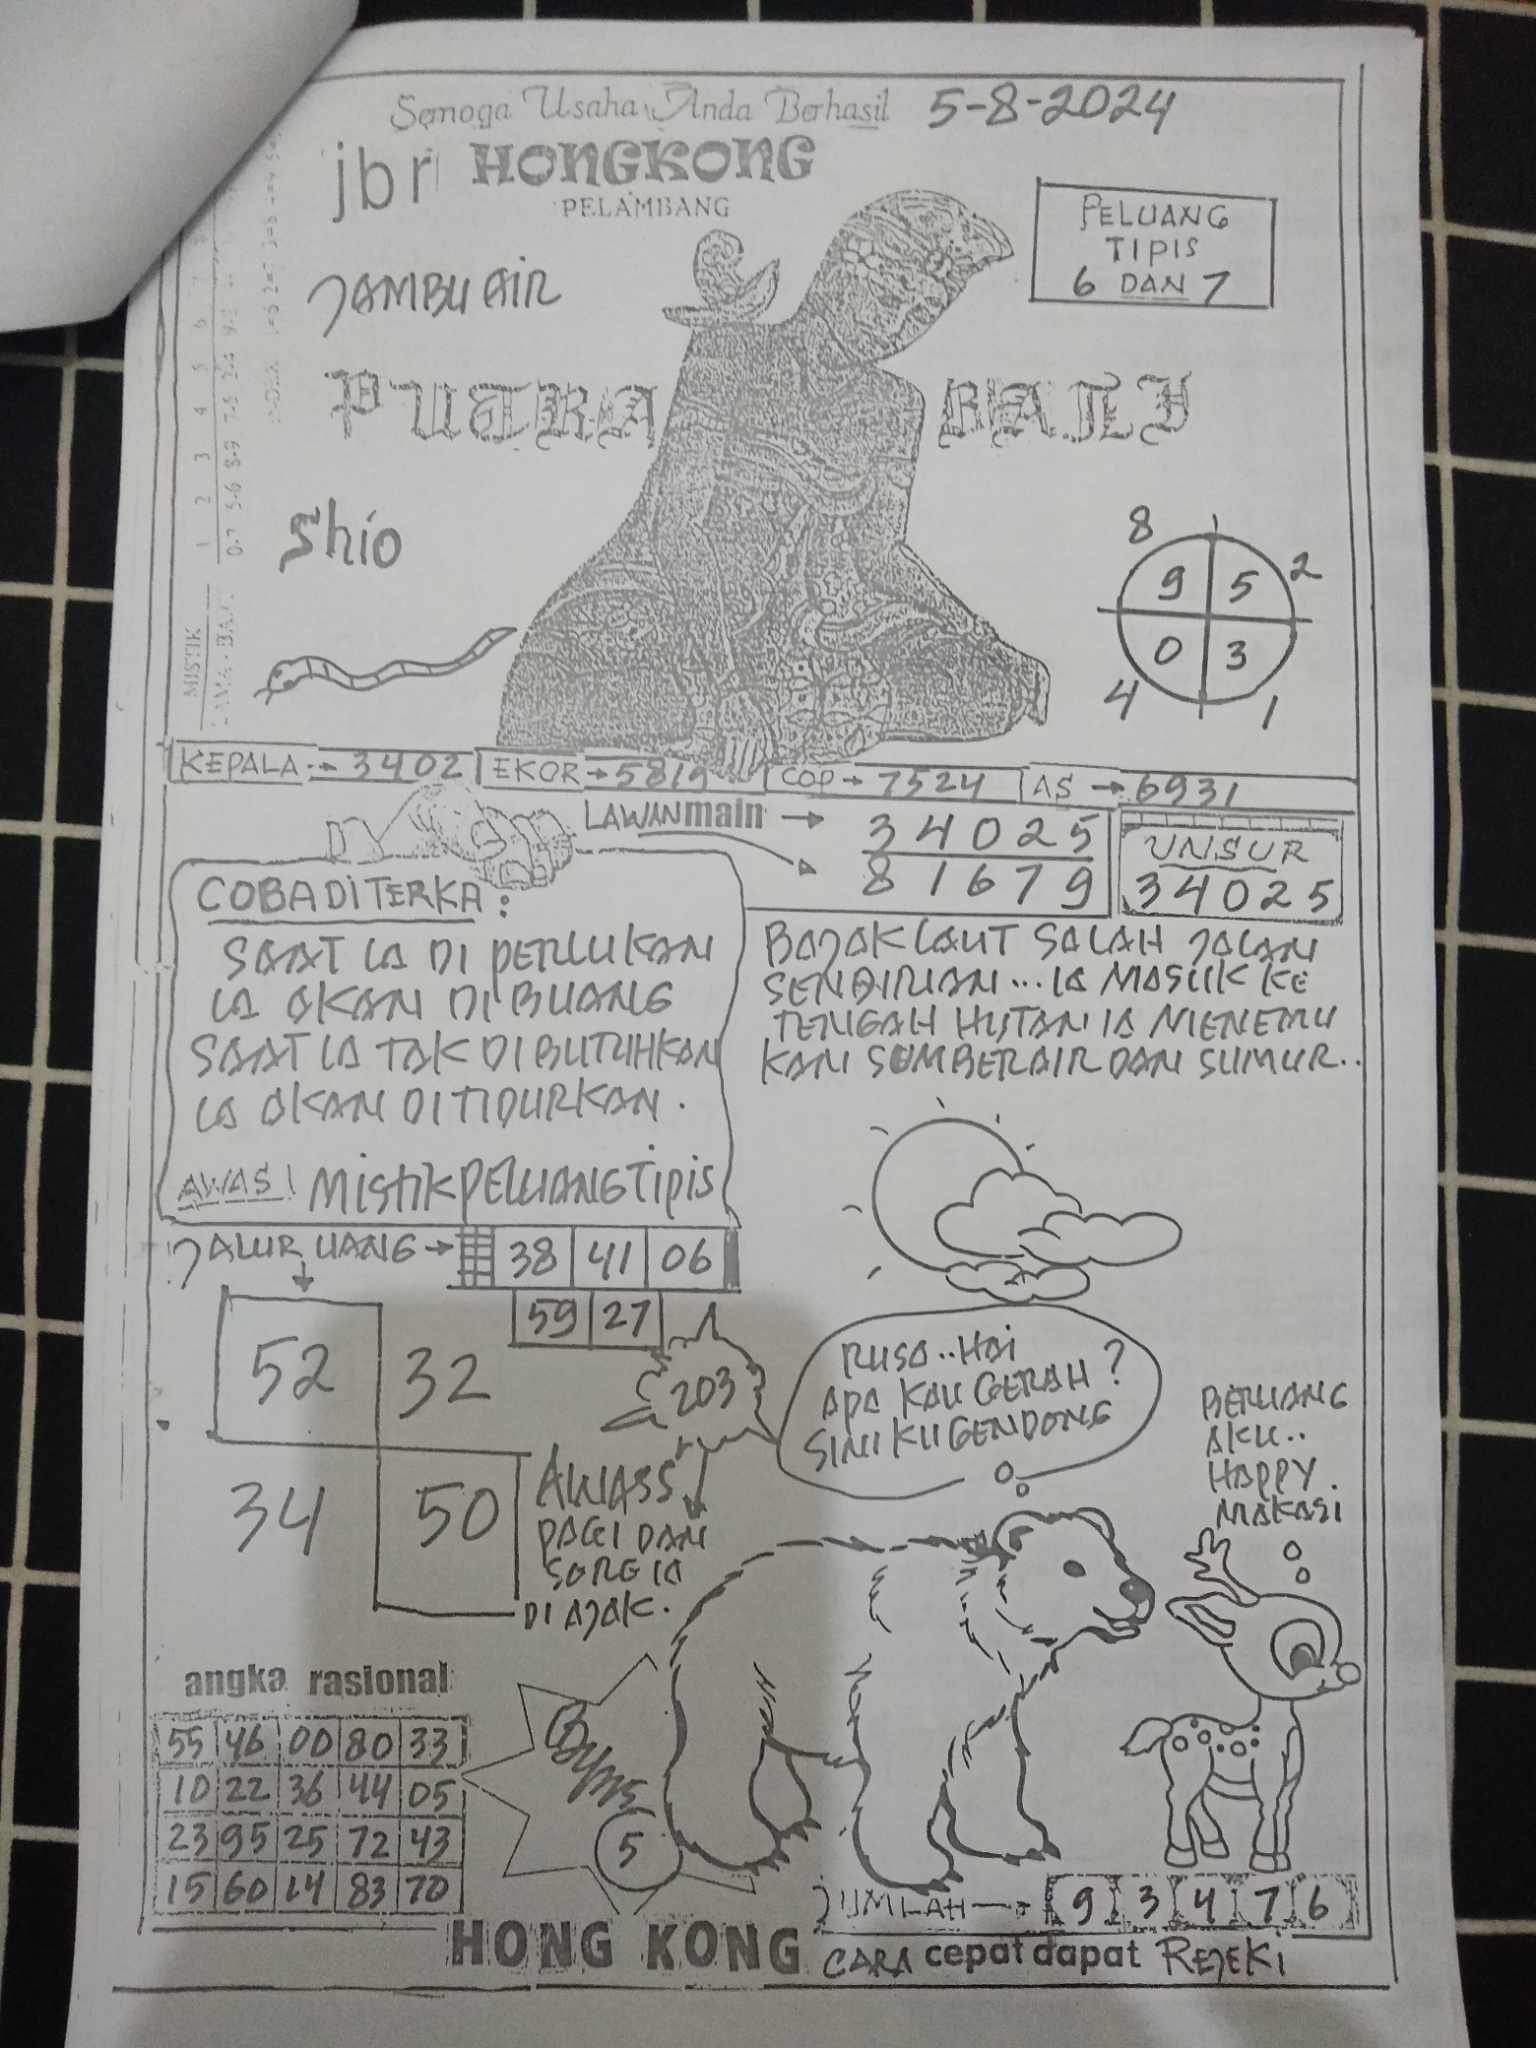 Semoga Usaha Anda Berhasil 5-8-2024
jbr HONGKONG
PELAMBANG
PELUANG
TIPIS
6 DAN 7
JAMBU AIR
PUTRA BALI
Shio
8 2
9 5
0 3
4 1
MISTIK
1 2 3 4 5 6 7
0-7 5-6 8-9 7-5 2-4
KEPALA → 3402 EKOR → 5819 COP → 7524 AS → 6931
LAWAN main → 34025
81679
UNSUR
34025
COBA DITERKA :
SAAT IA DI PERLUKAN
IA AKAN DI BUANG
SAAT IA TAK DIBUTUHKAN
IA AKAN DITIDURKAN.
AWAS! MISTIK PELUANG TIPIS
BAJAK LAUT SALAH JALAN
SENDIRIAN... IA MASUK KE
TENGAH HUTAN IA MENEMU
KAN SUMBER AIR DAN SUMUR..
JALUR UANG → 38 41 06
59 27
52 32
34 50
203
AWASS
PAGI DAN
SORE IA
DI AJAK.
RUSA..HAI
APA KAU GERAH?
SINI KU GENDONG
BERUANG
AKU..
HAPPY.
MAKASI
angka rasional
55 46 00 80 33
10 22 36 44 05
23 95 25 72 43
15 60 14 83 70
5
JUMLAH → 9 3 4 7 6
HONG KONG CARA cepat dapat REJEKI